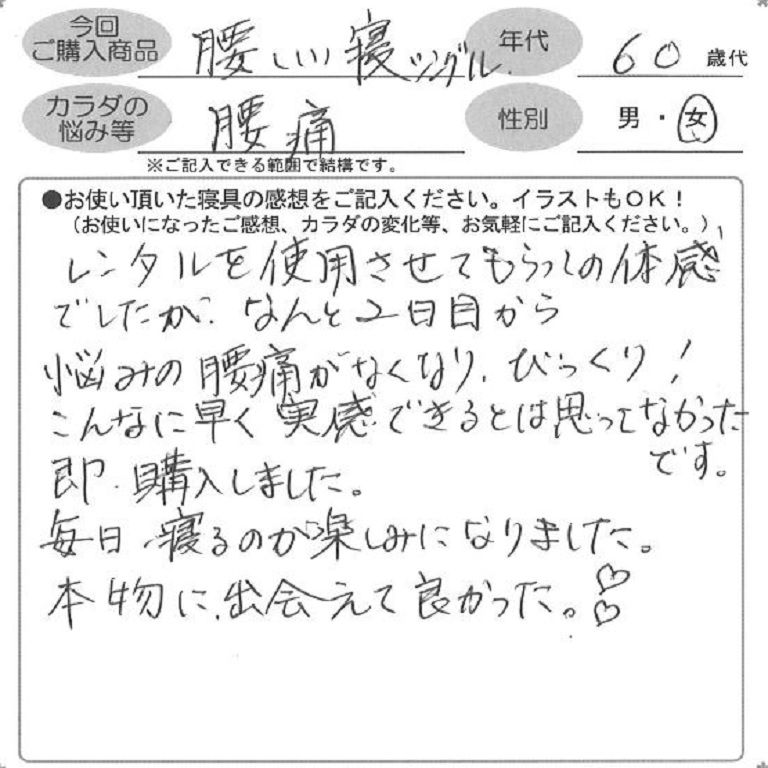 今回
ご購入商品
腰いい寝 シングル
年代
60 歳代
カラダの
悩み等
腰痛
性別
男・女
※ご記入できる範囲で結構です。
●お使い頂いた寝具の感想をご記入ください。イラストもOK！
（お使いになったご感想、カラダの変化等、お気軽にご記入ください。）
レンタルを使用させてもらっての体感
でしたが、なんと2日目から
悩みの腰痛がなくなり、びっくり！
こんなに早く実感できるとは思ってなかった
です。
即、購入しました。
毎日、寝るのが楽しみになりました。
本物に、出会えて良かった。♡♡